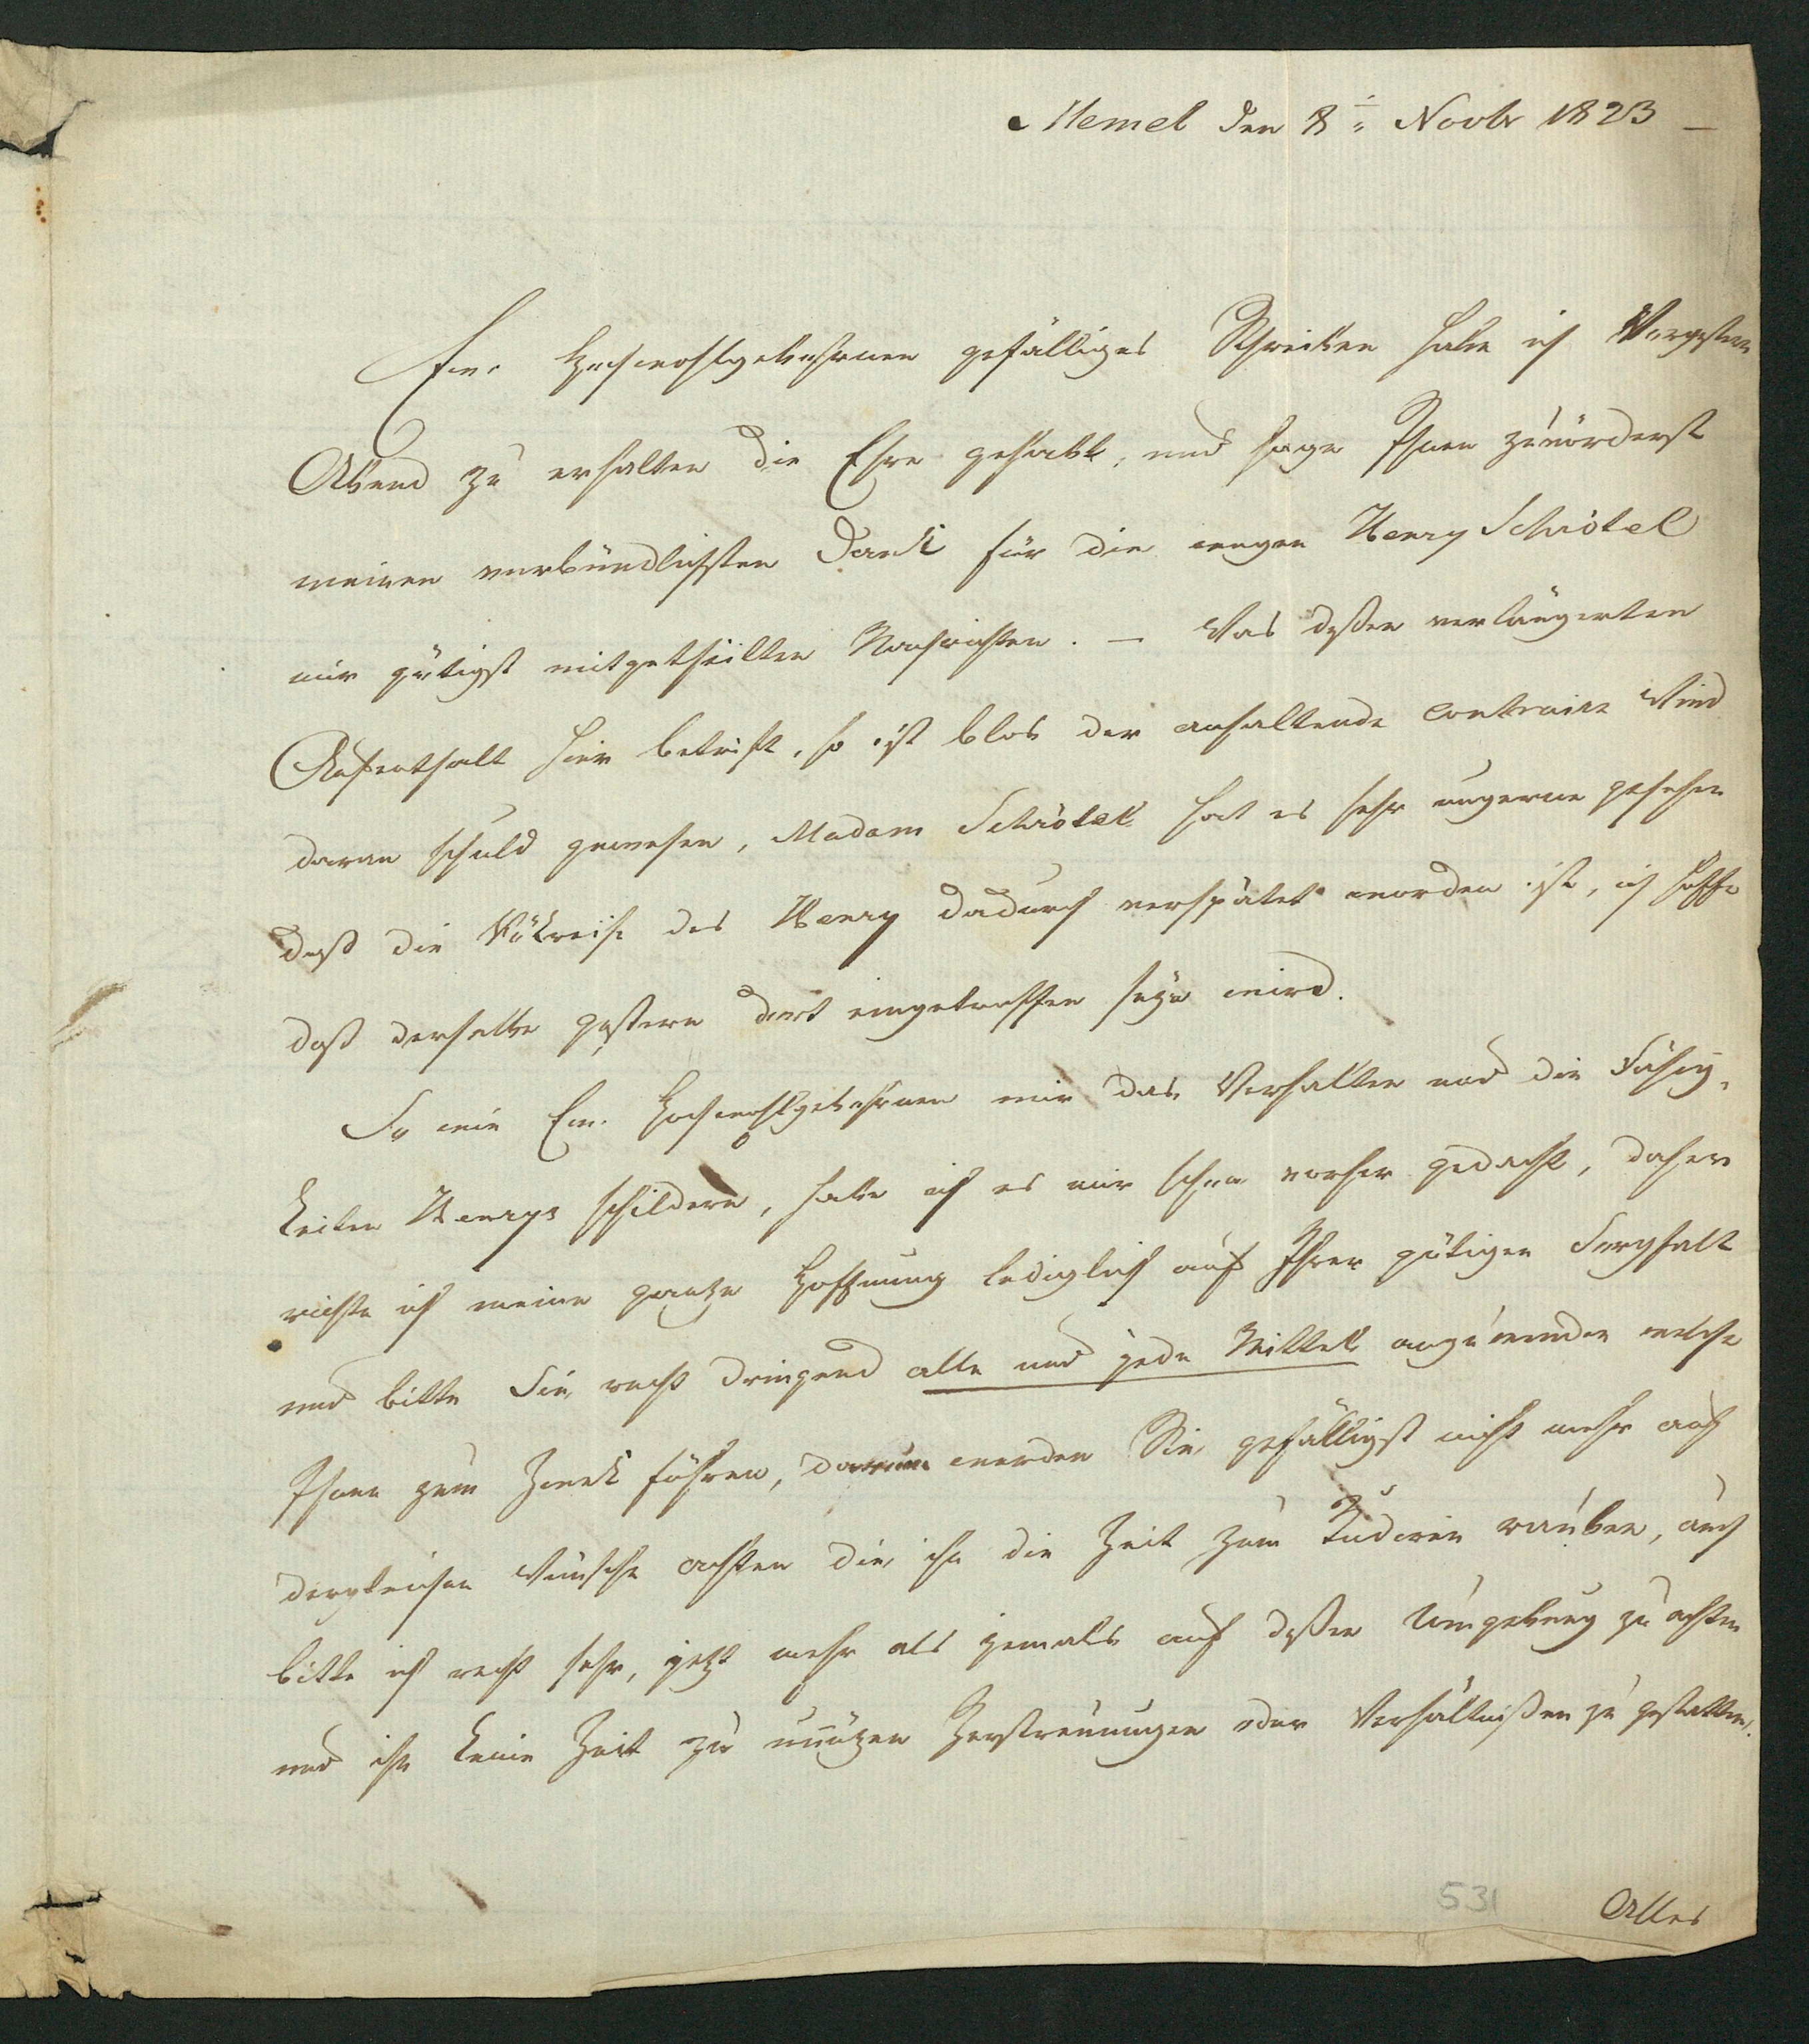 Memel den 8t. Novbr 1823 —
Ew. Hochwohlgebohrnen gefälliges Schreiben habe ich Vorgestern
Abend zu erhalten die Ehre gehabt, und sage Ihnen zuvörderst
meinen verbündlichsten Dank für die wegen Henry Schrötel
mir gütigst mitgetheilten Nachrichten. — Was deßen verlängerten
Aufenthalt hier betrift, so ist blos der anhaltende contraire Wind
daran schuld gewesen, Madam Schrötel hat es sehr ungerne gesehen
daß die Rükreise des Henry dadurch verspätet worden ist, ich hoffe
daß derselbe gestern dort eingetroffen seyn wird.
So wie Ew. Hochwohlgebohrnen mir das Verhalten und die Fähig-
keiten Henrys schildern, habe ich es mir schon vorher gedacht, daher
richte ich meine ganze Hoffnung lediglich auf Ihrer gütigen Sorgfalt
und bitte Sie, recht dringend alle und jede Mittel anzuwenden welche
Ihnen zum Zweck führen, darum werden Sie, gefälligst nicht mehr auf
dergleichen Wünsche achten die, ihn die Zeit zum Studieren rauben, auch
bitte ich recht sehr, jetzt mehr als jemals auf deßen Umgebung zu achten
und ihn keine Zeit zu unnüzen Zerstreuungen oder Verhältnißen zu gestatten.
531
Alles